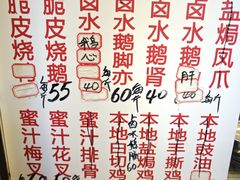 脆皮烧
脆皮烧鹅
每斤55
卤水
鹅心
40
卤水鹅脚亦
每斤
60
卤水鹅肾
40
卤水鹅
肝
40
盐焗凤爪
每斤
蜜汁梅
蜜汁花叉
蜜汁排骨
本地白切鸡
卤水
60
本地盐焗鸡
本地手撕鸡
本地豉油